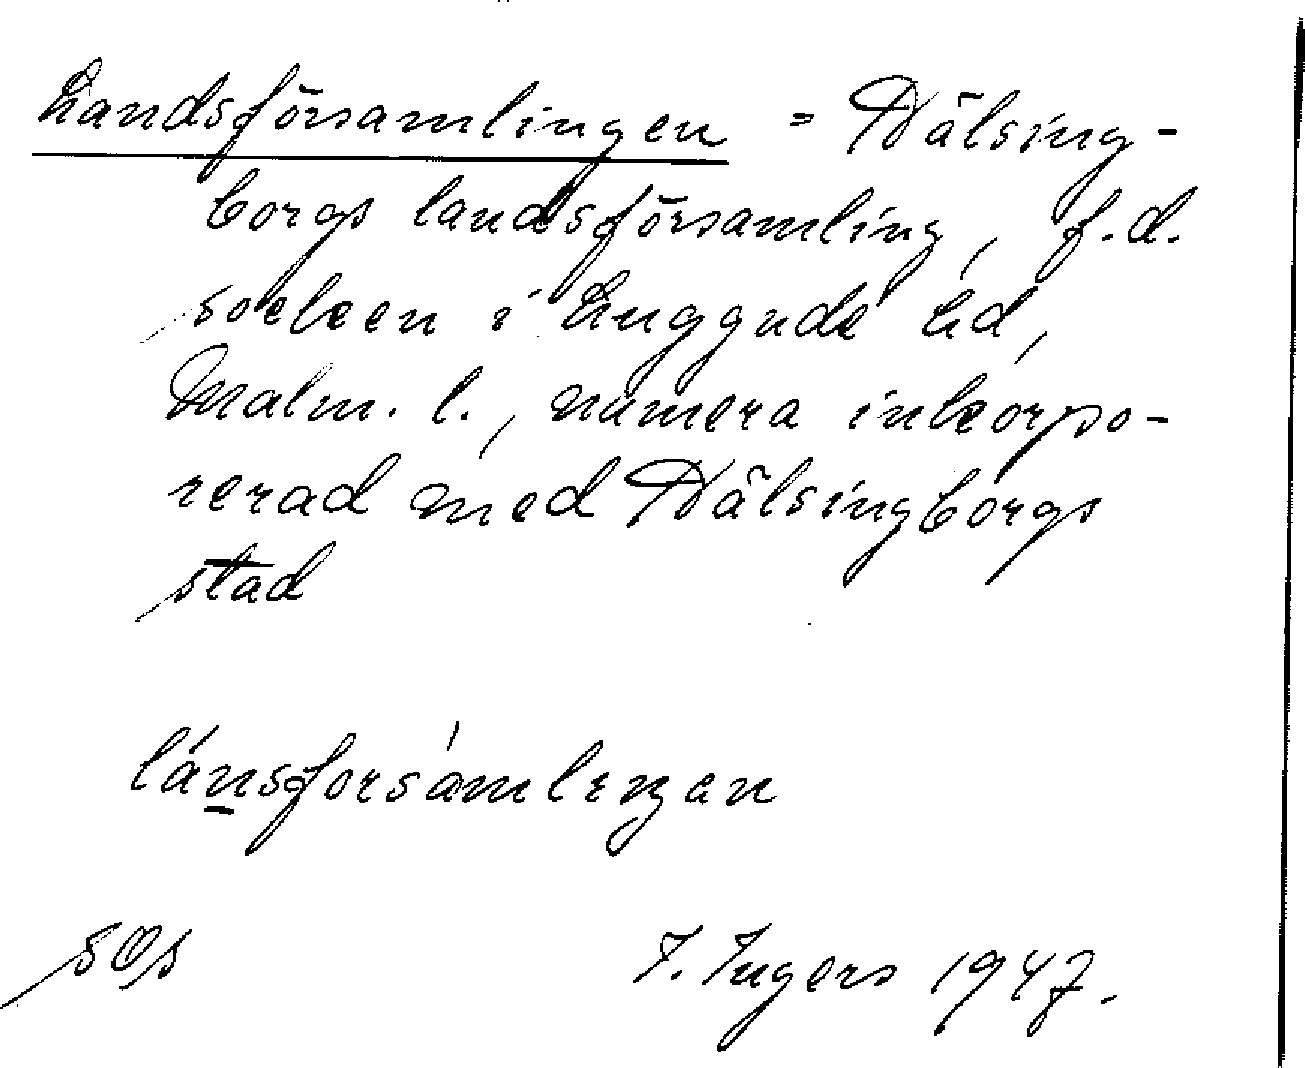 Landsförsamlingen = Hälsing-
borgs landsförsamling, f.d.
socken i Luggude hd,
Malm. l., numera inkorpo-
rerad med Hälsingborgs
stad
lánsforsàmlıŋan
sOs
I. Ingers 1947.